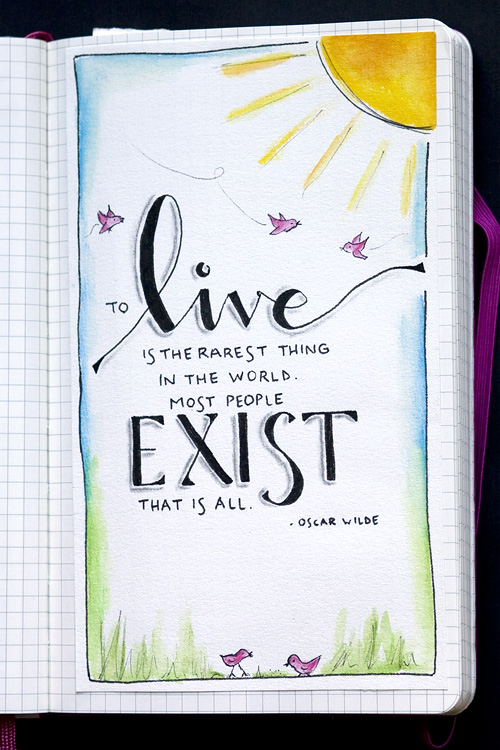 TO live
IS THE RAREST THING
IN THE WORLD.
MOST PEOPLE
EXIST
THAT IS ALL.
- OSCAR WILDE